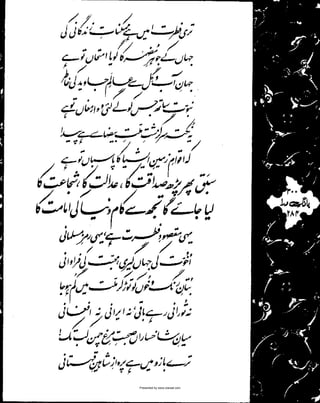 تری فطرت امیں ہے ممکناتِ زندگانی کی
جہاں کے جوہرِ مضمر کا گویا امتحاں تو ہے
جہانِ آب و گِل سے عالمِ جاوید کی خاطر
نبوت ساتھ جس کو لے گئی وہ ارمغاں تو ہے
یہ نکتہ سرگزشتِ ملّتِ بیضا سے ہے پیدا
کہ اقوامِ زمینِ ایشیا کا پاسباں تو ہے
سبق پھر پڑھ صداقت کا، عدالت کا، شجاعت کا
لیا جائے گا تجھ سے کام دنیا کی امامت کا
یہی مقصودِ فطرت ہے، یہی رمزِ مسلمانی
اخوّت کی جہاں گیری، محبت کی فراوانی
بتانِ رنگ و خوں کو توڑ کر ملّت میں گم ہو جا
نہ تورانی رہے باقی، نہ ایرانی، نہ افغانی
میانِ شاخساراں صحبتِ مرغِ چمن کب تک
ترے بازو میں ہے پروازِ شاہینِ قہستانی
۳۰۰
بانگِ درا
۲۸۴
Presented by www.ziaraat.com